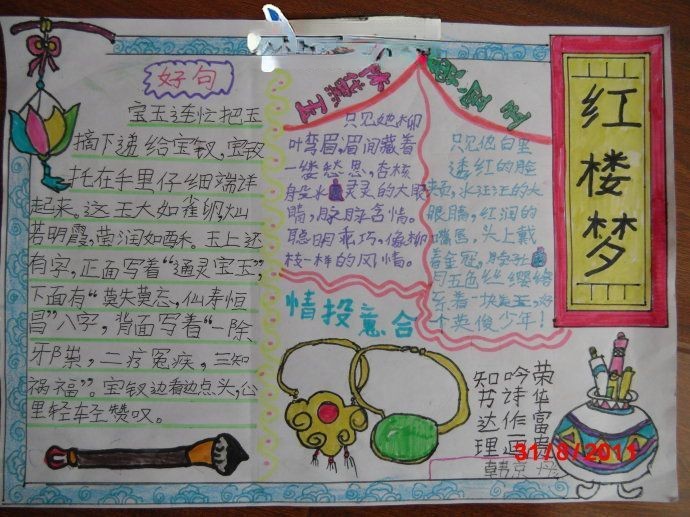 好句
宝玉连忙把玉
摘下递给宝钗，宝钗
托在手里仔细端详
起来。这玉大如雀卵，灿
若明霞，莹润如酥。玉上还
有字，正面写着“通灵宝玉”，
下面有“莫失莫忘，仙寿恒
昌”八字，背面写着“一除
邪祟，二疗冤疾，三知
祸福”。宝钗边看边点头，心
里轻轻赞叹。
林黛玉
只见她柳
叶弯眉，眉间藏着
一缕愁思，杏核
般水灵灵的大眼
睛，脉脉含情。
聪明乖巧，像柳
枝一样的风情。
贾宝玉
只见他白里
透红的脸
水汪汪的大
眼睛，红润的
嘴唇，头上戴
着金冠，
用五色丝缨络
系着一块美玉，好
个英俊少年！
红楼梦
情投意合
荣华富贵
吟诗作画
知书达理
韩京
31/8/2011